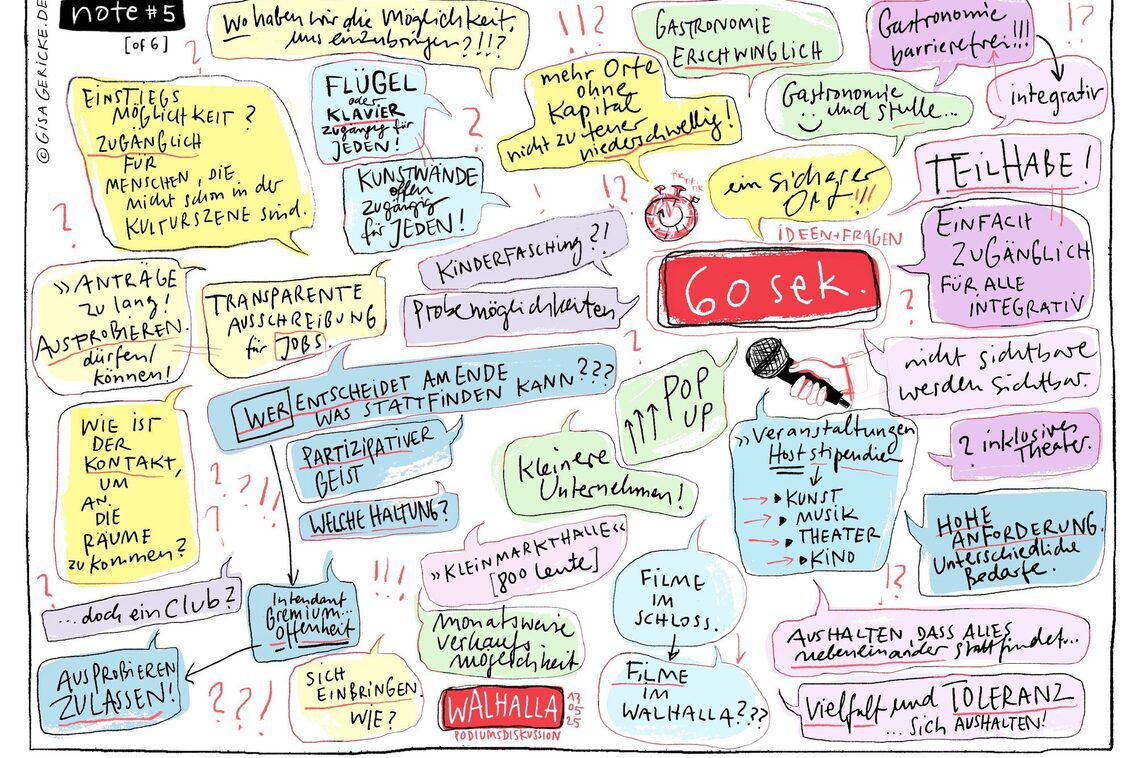 note #5
[of 6]
©GISAGERICKE.DE
Wo haben wir die Möglichkeit,
uns einzubringen?!!?
GASTRONOMIE
ERSCHWINGLICH
Gastronomie
barrierefrei!!!
integrativ
EINSTIEGS
MÖGLICHKEIT?
ZUGÄNGLICH
FÜR
MENSCHEN, DIE
nicht schon in der
KULTURSZENE sind.
FLÜGEL
oder
KLAVIER
zugängig für
JEDEN!
mehr Orte
ohne
Kapital
nicht zu teuer
niederschwellig!
Gastronomie
und Stulle...
KUNSTWÄNDE
offen
zugängig
für JEDEN!
TIK
TIK
TIK
ein sicherer
ORT!!!
TEILHABE!
IDEEN+FRAGEN
60 sek.
EINFACH
ZUGÄNGLICH
FÜR ALLE
INTEGRATIV
KINDERFASCHING?!
Probemöglichkeiten
»ANTRÄGE
zu lang!
AUSPROBIEREN.
dürfen/
können!
TRANSPARENTE
AUSSCHREIBUNG
für JOBS.
nicht sichtbare
werden sichtbar.
WER ENTSCHEIDET AM ENDE
WAS STATTFINDEN KANN???
POP
UP
WIE IST
DER
KONTAKT,
UM
AN.
DIE
RÄUME
zu kommen?
PARTIZIPATIVER
GEIST
WELCHE HALTUNG?
Kleinere
Unternehmen!
»Veranstaltungen
Hoststipendien
KUNST
MUSIK
THEATER
KINO
? inklusives
Theater.
HOHE
ANFORDERUNG.
Unterschiedliche
Bedarfe.
»KLEINMARKTHALLE«
[800 Leute]
FILME
IM
SCHLOSS.
...doch ein Club?
Intendant
Gremium...
Offenheit
monatsweise
verkaufs
möglichkeit
AUSHALTEN, DASS ALLES
nebeneinander stattfindet...
AUSPROBIEREN
ZULASSEN!
SICH
EINBRINGEN.
WIE?
WALHALLA
13
05
25
PODIUMSDISKUSSION
FILME
IM
WALHALLA????
Vielfalt und TOLERANZ
...sich AUSHALTEN!